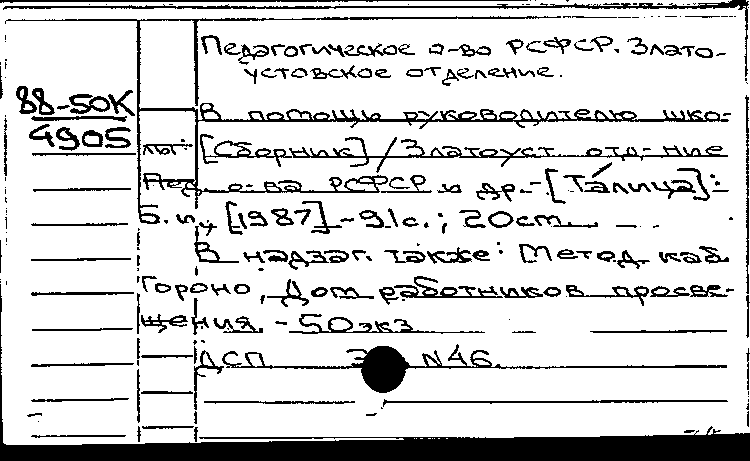 Педагогическое о-во РСФСР. Злато-
устовское отделение.
88-50К
4905
В помощь руководителю шко-
лы: [Сборник] / Златоуст. отд-ние
Пед. о-ва РСФСР и др. - [Талица]:
Б.и., [1987] - 91с.; 20см.
В надзаг. также: Метод. каб.
Гороно, Дом работников просве-
щения. - 50экз
ДСП N46.